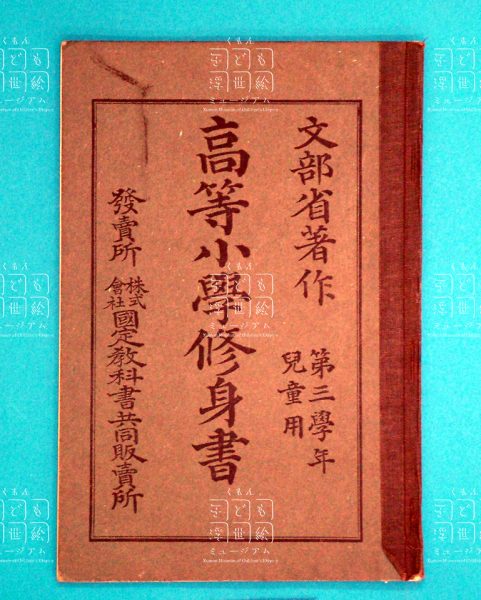 文部省著作
第三學年
兒童用
高等小學修身書
發賣所 株式會社 國定教科書共同販賣所
くもん
子ども
浮世絵
ミュージアム
Kumon Museum of Children's Ukiyo-e